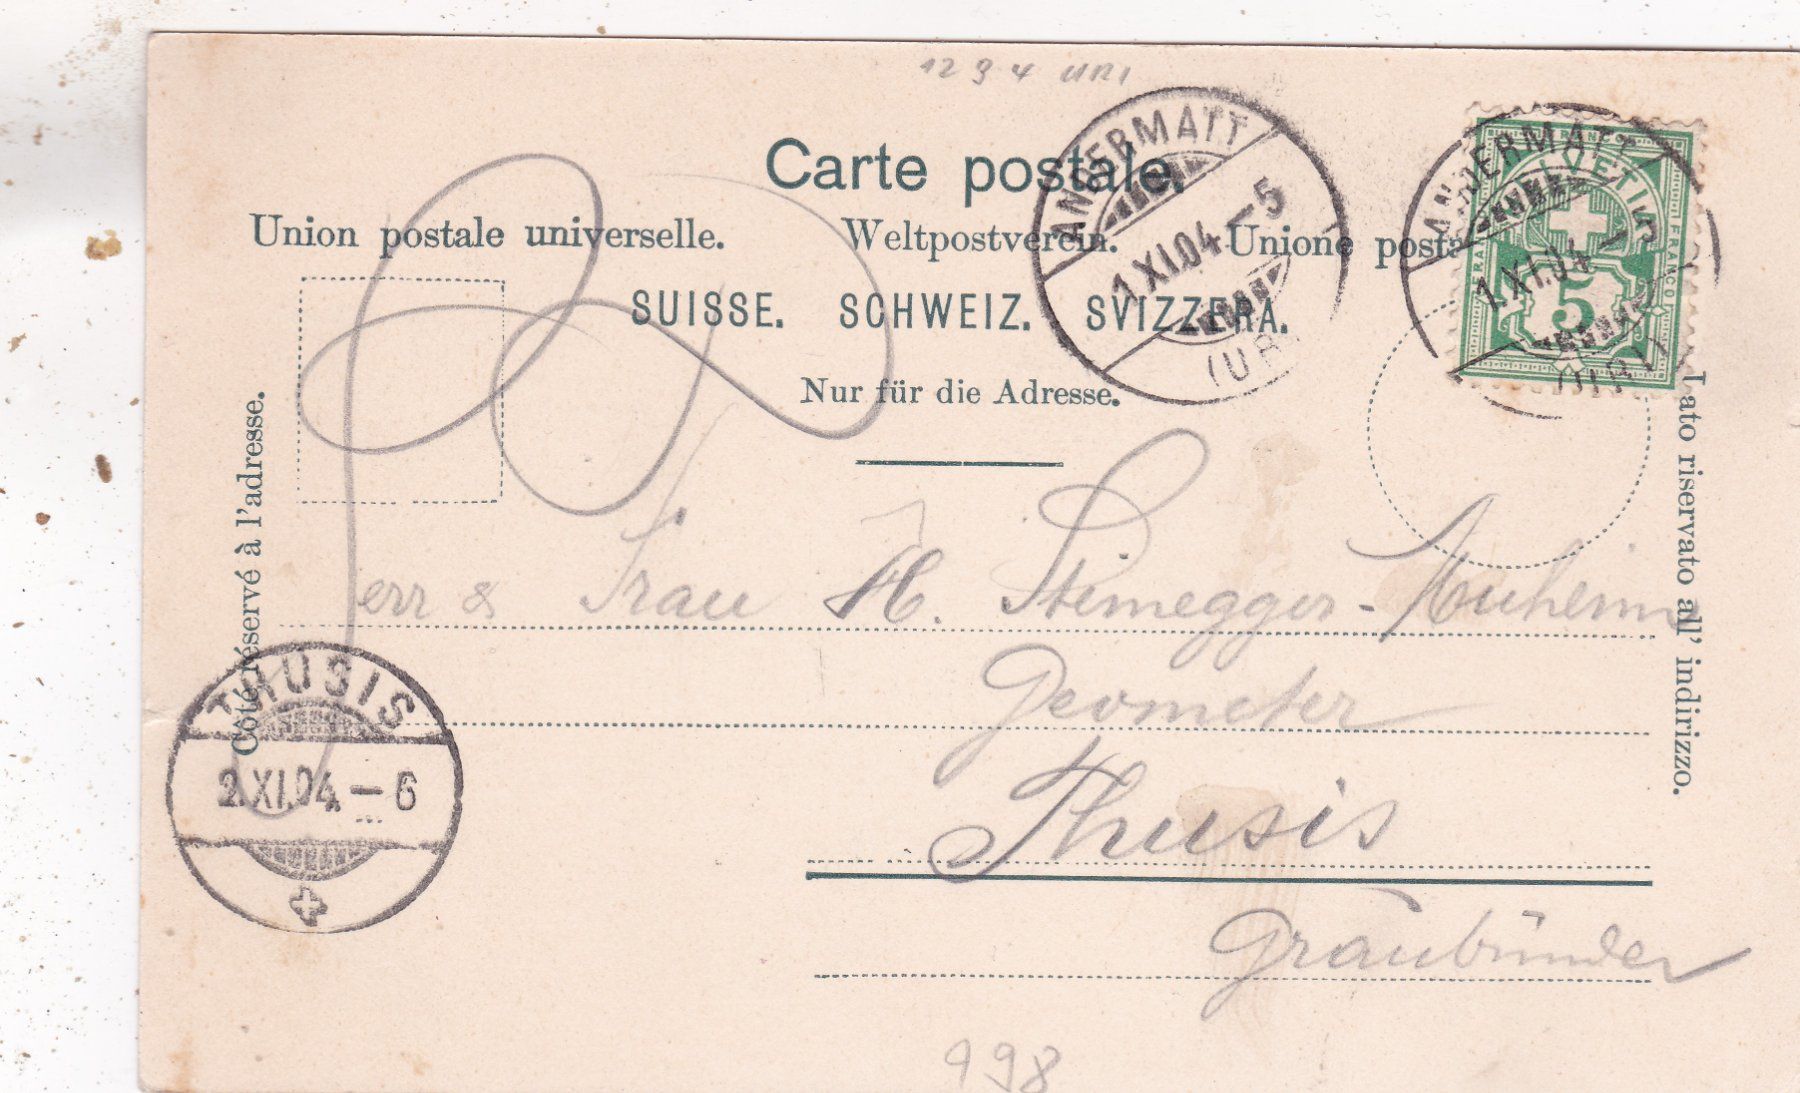 1234 URI
Carte postale.
Union postale universelle. Weltpostverein. Unione posta
SUISSE. SCHWEIZ. SVIZZERA.
Nur für die Adresse.
Côté réservé à l'adresse.
Lato riservato all' indirizzo.
ANDERMATT
1.XI.04–5
(URI
ANDERMATT
1.XI.04–5
(URI)
FRANCO
HELVETIA
FRANCO
5
Herr & Frau H. Steinegger-Muheim
Geometer
Thusis
Graubünden
THUSIS
2.XI.04.–6
998